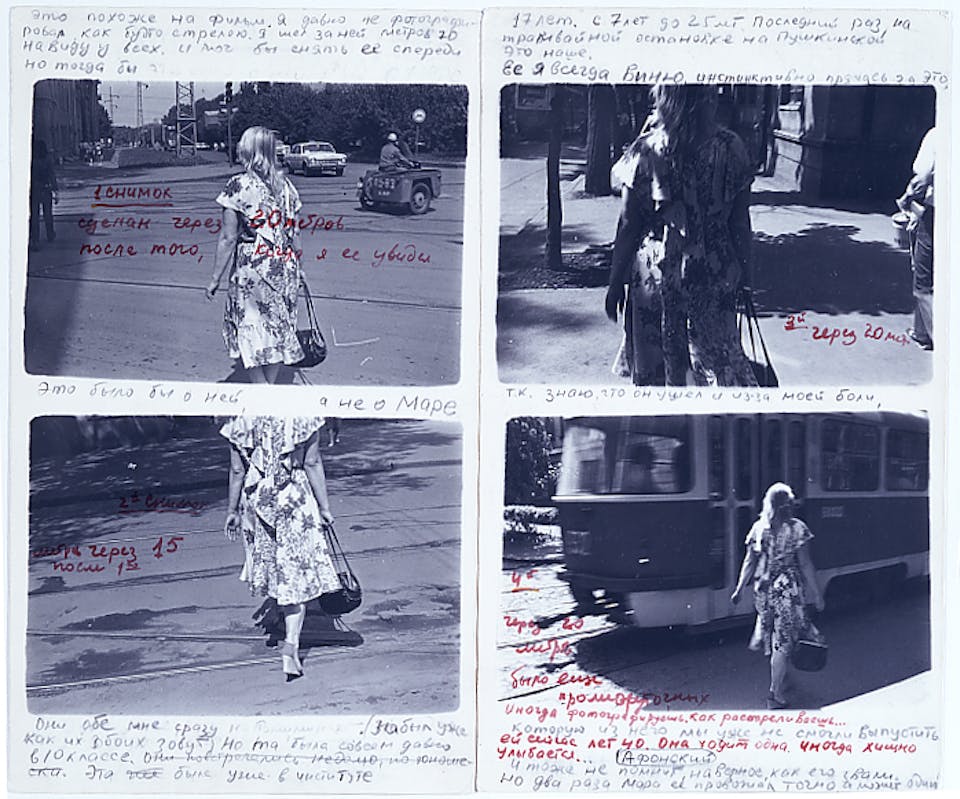 Это похоже на фильм. Я давно не фотографи-
ровал, как будто стрелою. Я шел за ней метров 20
на виду у всех. И мог бы снять её спереди
но тогда бы
1 снимок
сделан через 20 метров
после того, когда я ее увидел
Это было бы о ней, а не о Маре
2й снимок
метра через 15
после 1го
Они обе мне сразу (забыл уже
как их обоих зовут) Но та была совсем давно
в 10 классе. Они
Эта была уже в институте
17 лет. с 7 лет до 25 лет. Последний раз, на
трамвайной остановке на Пушкинской
Это наше.
Её я всегда виню, инстинктивно прячась за это
3й через 20 метр.
т.к. знаю, что он ушел и из-за моей боли,
4й
через 20
метра
было еще
промежуточных
Иногда фотографируешь, как расстреливаешь...
которую из него мы уже не смогли выпустить
ей сейчас лет 40. Она ходит одна, иногда хищно
улыбается... Афонский
Я тоже не помню, наверное, как его звали.
но два раза Мара её провожал точно